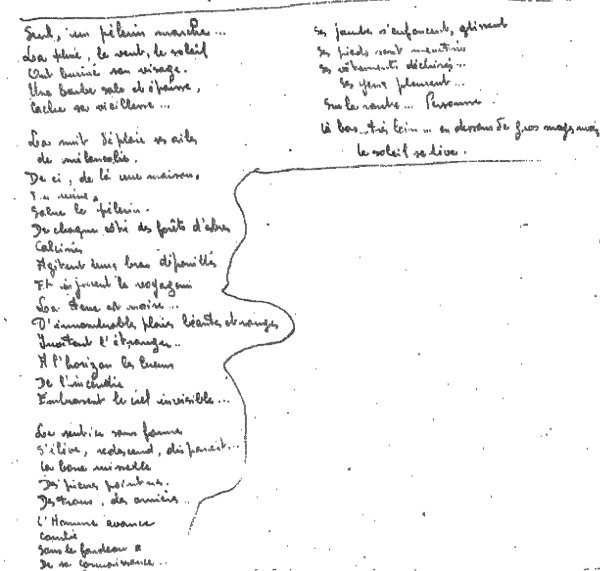 Seul, un pélerin marche...
La pluie, le vent, le soleil
Ont buriné son visage.
Une barbe sale et épaisse,
Cache sa vieillesse...
La nuit déploie ses ailes
de mélancolie.
De ci, de là une maison,
En ruine,
Salue le pélerin.
De chaque côté des forêts d'arbres
Calcinés
Agitent leurs bras dépouillés
Et le voyageur
La Terre est noire...
D'innombrables plaies béantes et rouges
Invitent l'étranger...
A l'horizon les lueurs
De l'incendie
Embrasent le ciel invisible...
Le sentier sans forme
S'élève, redescend, disparait...
La boue ruisselle
Des pierres pointues.
Des trous, des ornières
L'Homme avance
Courbé
Sous le fardeau
De sa connaissance...
Ses jambes s'enfoncent, glissent
Ses pieds sont meurtris
Ses vêtements déchirés...
Ses yeux pleurent...
Sur la route... Personne.
Là bas... très loin... en dessous de gros nuages noirs
Le soleil se lève.